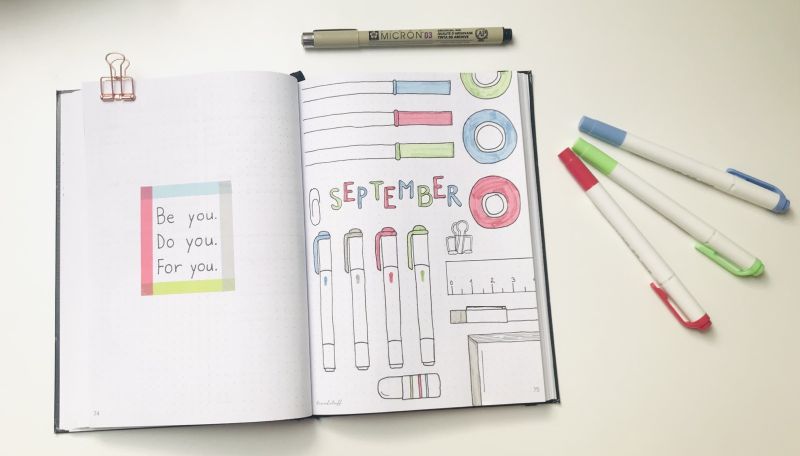 MICRON 03
Be you.
Do you.
For you.
SEPTEMBER
0 1 2 3